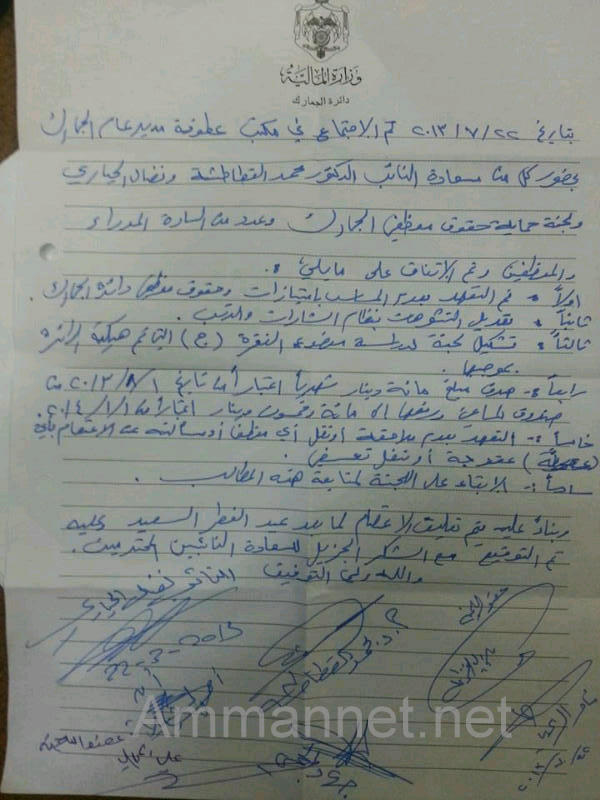 وزارة المالية
دائرة الجمارك
بتاريخ ٢٢/٧/٢٠١٣ تم الاجتماع في مكتب عطوفة مدير عام الجمارك
بحضور كل من سعادة النائب الدكتور محمد القطاطشة ونضال الحياري
ولجنة حماية حقوق موظفي الجمارك وعدد من السادة المدراء
والموظفين وتم الاتفاق على مايلي :-
اولاً :- تم التعهد بعدم المساس بامتيازات وحقوق موظفي دائرة الجمارك .
ثانياً :- تعديل التشوهات بنظام الشارات والرتب .
ثالثاً :- تشكيل لجنة لدراسة موضوع الفقرة (ج) التي تم هيكلة الدائرة
بموجبها .
رابعاً :- صرف مبلغ مائة دينار شهرياً اعتباراً من تاريخ ١/٨/٢٠١٣ من
صندوق ورفعها الى مائة وخمسون دينار اعتباراً من ١/١/٢٠١٤ .
خامساً :- التعهد بعدم ملاحقة أو نقل أي موظف أو مسألته عن الاعتصام بأية
عقوبة أو نقل تعسفي .
سادساً :- الابقاء على اللجنة لمتابعة هذه المطالب .
وبناءً عليه يتم تعليق الاعتصام لما بعد عيد الفطر السعيد وعليه
تم التوقيع مع الشكر الجزيل لسعادة النائبين المحترمين .
والله ولي التوفيق
النائب نضال الحياري
د. محمد القطاطشة
22-7-2013
عضو اللجنة
عضو اللجنة
Ammannet.net